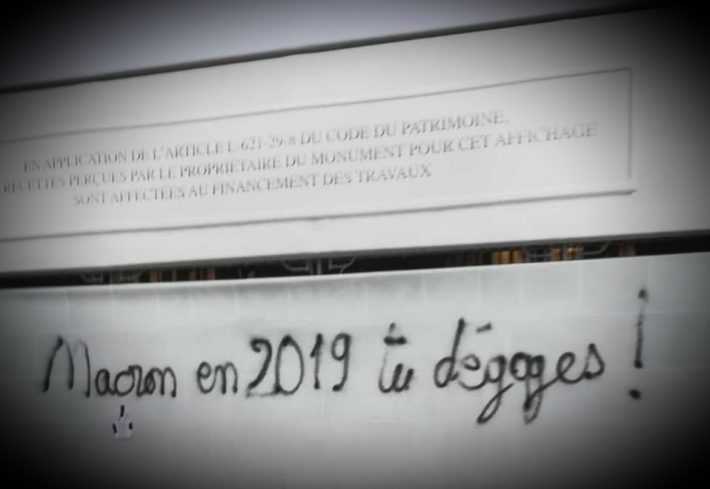 EN APPLICATION DE L'ARTICLE L-621-29-8 DU CODE DU PATRIMOINE,
RECETTES PERÇUES PAR LE PROPRIETAIRE DU MONUMENT POUR CET AFFICHAGE
SONT AFFECTEES AU FINANCEMENT DES TRAVAUX
Macron en 2019 tu dégages !